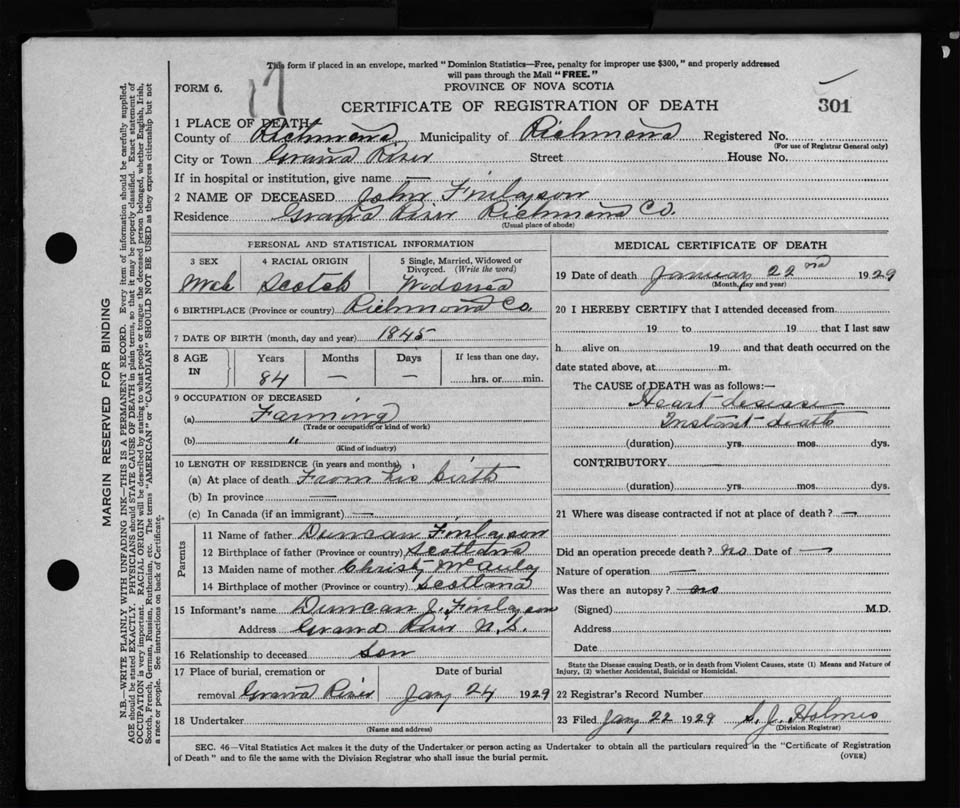 This form if placed in an envelope, marked "Dominion Statistics—Free, penalty for improper use $300," and properly addressed
will pass through the Mail "FREE."
17
FORM 6.
PROVINCE OF NOVA SCOTIA
CERTIFICATE OF REGISTRATION OF DEATH
301
1 PLACE OF DEATH
County of Richmond Municipality of Richmond Registered No.
(For use of Registrar General only)
City or Town Grand River Street House No.
If in hospital or institution, give name —
2 NAME OF DECEASED John Finlayson
Residence Grand River Richmond Co.
(Usual place of abode)
PERSONAL AND STATISTICAL INFORMATION
3 SEX 4 RACIAL ORIGIN 5 Single, Married, Widowed or Divorced. (Write the word)
Male Scotch Widowed
6 BIRTHPLACE (Province or country) Richmond Co.
7 DATE OF BIRTH (month, day and year) 1845
8 AGE IN Years Months Days If less than one day,
84 — — hrs. or min.
9 OCCUPATION OF DECEASED
(a) Farming
(Trade or occupation or kind of work)
(b) "
(Kind of industry)
10 LENGTH OF RESIDENCE (in years and months)
(a) At place of death From his birth
(b) In province —
(c) In Canada (if an immigrant) —
Parents
11 Name of father Duncan Finlayson
12 Birthplace of father (Province or country) Scotland
13 Maiden name of mother Christy McAuley
14 Birthplace of mother (Province or country) Scotland
15 Informant's name Duncan J. Finlayson
Address Grand River N.S.
16 Relationship to deceased Son
17 Place of burial, cremation or Date of burial
removal Grand River Jany 24 1929
18 Undertaker
(Name and address)
MEDICAL CERTIFICATE OF DEATH
19 Date of death January 22nd 1929
(Month, day and year)
20 I HEREBY CERTIFY that I attended deceased from
19 to 19 that I last saw
h alive on 19 and that death occurred on the
date stated above, at m.
The CAUSE of DEATH was as follows:—
Heart desease
Instant death
(duration) yrs. mos. dys.
CONTRIBUTORY —
(duration) yrs. mos. dys.
21 Where was disease contracted if not at place of death? —
Did an operation precede death? no Date of —
Nature of operation —
Was there an autopsy? no
(Signed) M.D.
Address
Date
State the Disease causing Death, or in death from Violent Causes, state (1) Means and Nature of
Injury, (2) whether Accidental, Suicidal or Homicidal.
22 Registrar's Record Number
23 Filed Jany 22 1929 S. J. Holmes
(Division Registrar)
SEC. 46—Vital Statistics Act makes it the duty of the Undertaker or person acting as Undertaker to obtain all the particulars required in the "Certificate of Registration
of Death" and to file the same with the Division Registrar who shall issue the burial permit.
(OVER)
MARGIN RESERVED FOR BINDING
N.B.—WRITE PLAINLY WITH UNFADING INK—THIS IS A PERMANENT RECORD. Every item of information should be carefully supplied.
AGE should be stated EXACTLY. PHYSICIANS should STATE CAUSE OF DEATH in plain terms, so that it may be properly classified. Exact statement of
OCCUPATION is very important. RACIAL ORIGIN will be described by stating to what people or tongue the deceased person belonged, whether English, Irish,
Scotch, French, German, Russian, Ruthenian, etc. The terms "AMERICAN" or "CANADIAN" SHOULD NOT BE USED as they express citizenship but not
a race or people. See instructions on back of Certificate.